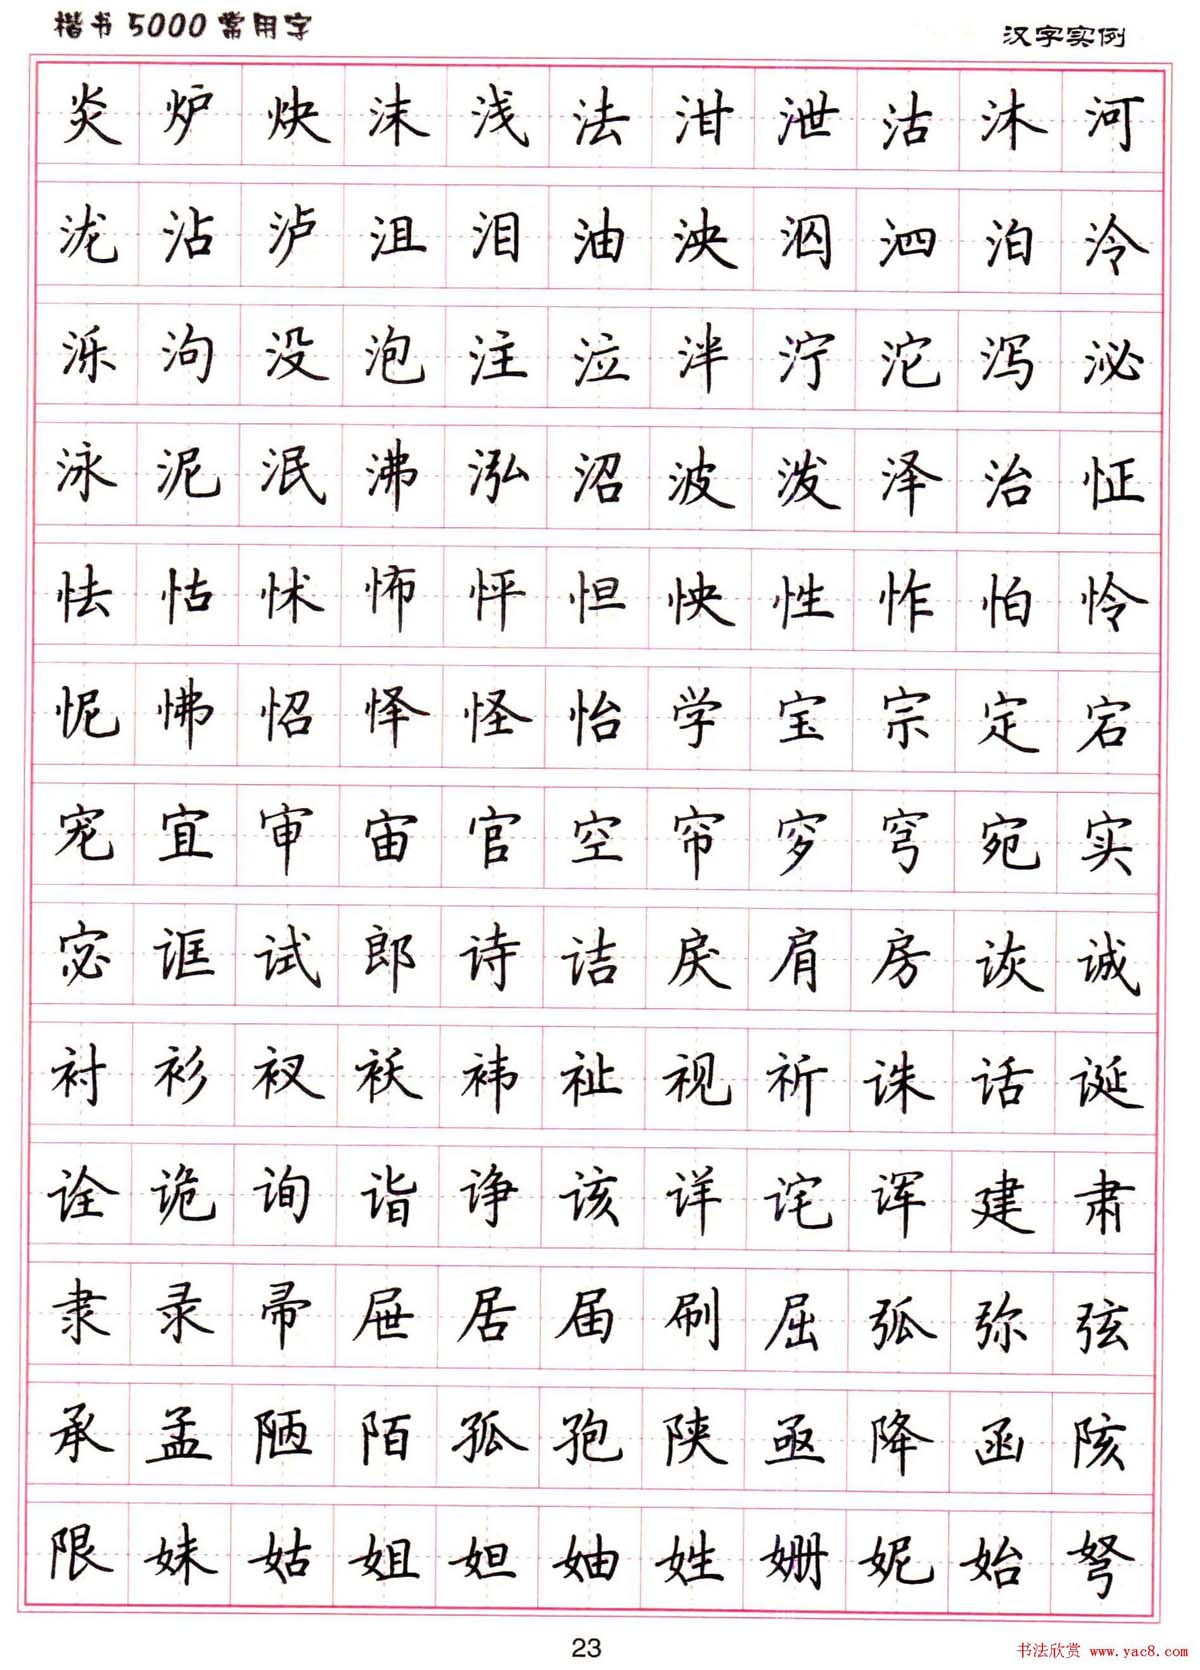 楷书5000常用字 汉字实例
炎炉炔沫浅法泔泄沽沐河
泷沾泸沮泪油泱泅泗泊泠
泺泃没泡注泣泮泞沱泻泌
泳泥泯沸泓沼波泼泽治怔
怯怙怵怖怦怛怏性怍怕怜
怩怫怊怿怪怡学宝宗定宕
宠宜审宙官空帘穸穹宛实
宓诓试郎诗诘戾肩房诙诚
衬衫衩袄祎祉视祈诛话诞
诠诡询诣诤该详诧诨建肃
隶录帚屉居届刷屈弧弥弦
承孟陋陌孤孢陕亟降函陔
限妹姑姐妲妯姓姗妮始弩
23
书法欣赏 www.yac8.com